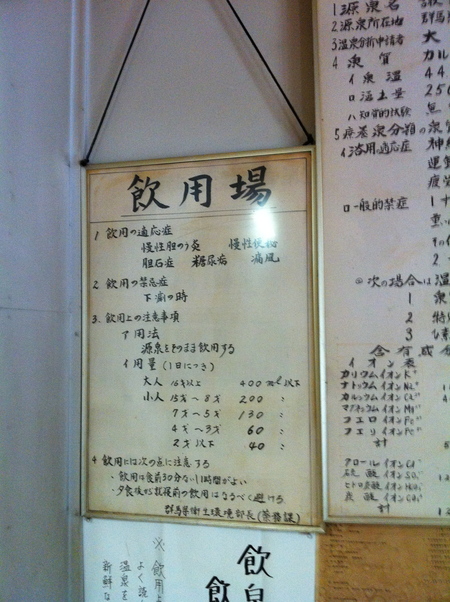 飲用場
1 飲用の適応症
慢性胆のう炎 慢性便秘
胆石症 糖尿病 痛風
2 飲用の禁忌症
下痢の時
3. 飲用上の注意事項
ア 用法
源泉をそのまま飲用する
イ 用量 (1日につき)
大人 16才以上 400 ml以下
小人 15才~8才 200 〃
7才~5才 130 〃
4才~3才 60 〃
2才以下 40 〃
4 飲用には次の点に注意する
・飲用は食前30分ないし1時間がよい
・夕食後から就寝前の飲用はなるべく避ける
群馬県衛生環境部長(薬務課)
1 源泉名
2 源泉所在地 群馬
3 温泉分析申請者 大
4 泉質 カル
イ 泉温 44.
ロ 湧出量 250
ハ 知覚的試験 無
5 療養泉分類の泉質
イ 浴用の適応症 神経
運
疲労
ロ 一般的禁症 1
重い
その
2
◎ 次の場合は温
1 泉
2 特
3 ひ
含有成分
イオン表
カリウムイオンK
ナトリウムイオンNa
カルシウムイオンCa
マグネシウムイオンMg
フエロイオンFe
フエリイオンFe
計
クロールイオンCl
硫酸イオンSO
ヒドロ炭酸イオンHCO
炭酸イオンCO
計
飲泉
飲
※飲用
よく
温泉を
新鮮な